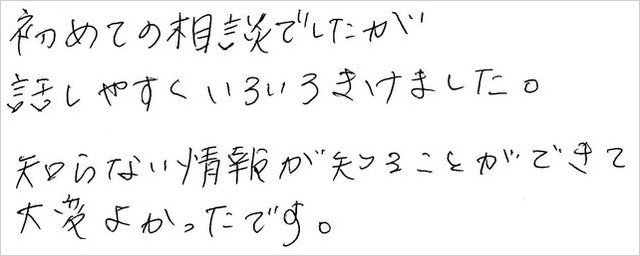 初めての相談でしたが
話しやすくいろいろきけました。
知らない情報が知ることができて
大変よかったです。